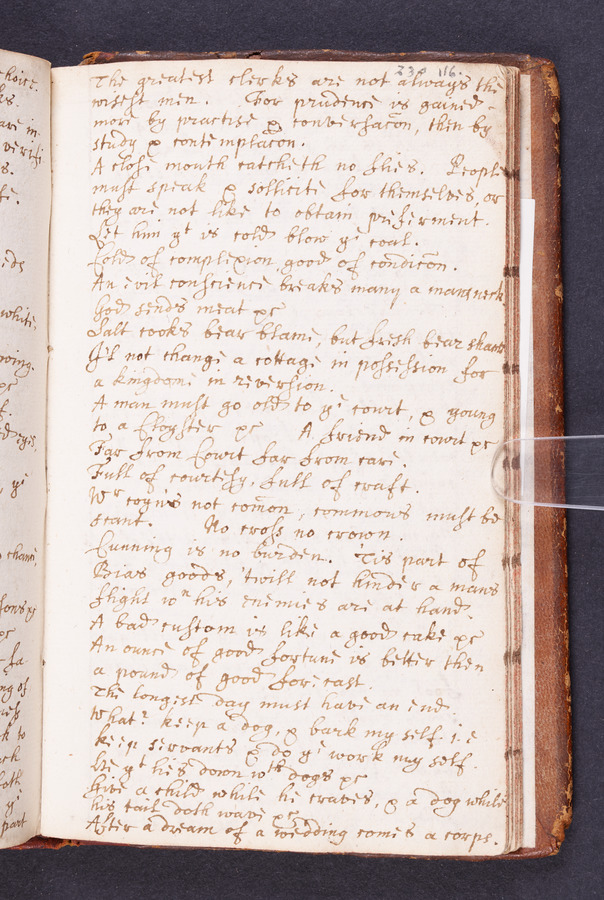 230 116.
The greatest clerks are not always the
wisest men. For prudence is gained
more by practise & conversacōn, then by
study & contemplacon.
A close mouth catcheth no flies. People
must speak & sollicite for themselves, or
they are not like to obtain preferment.
Let him yt is cold blow ye coal.
Cold of complexion good of condicōn.
An evil conscience breaks many a mans neck
God sends meat &c
Salt cooks bear blame, but fresh bear shame
I'l not change a cottage in possession for
a kingdome in reversion.
A man must go old to ye court, & young
to a Cloyster &c A friend in court &c
Far from Court far from care.
Full of courtesy, full of craft.
Wr coyn's not comōn, commons must be
scant. No cross no crown.
Cunning is no burden. Tis part of
Bias goods, 'twill not hinder a mans
flight wn his enemies are at hand.
A bad custom is like a good cake &c
An ounce of good fortune is better then
a pound of good forecast.
The longest day must have an end.
What? keep a dog, & bark my self. i.e
keep servants & do ye work my self.
He yt lies down wth dogs &c
Give a child while he craves, & a dog while
his tail doth wave &c
After a dream of a wedding comes a corps.
choice.
are in
verifi
white,
&c
ye
&c
ye
part